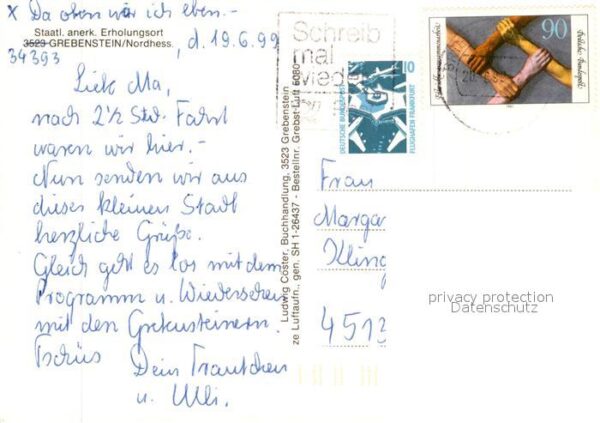 x Da oben wir ich eben.-
Staatl. anerk. Erholungsort
3523 GREBENSTEIN/Nordhess.
34393
, d. 19.6.99
Liebe Ma,
nach 2½ Std. Fahrt
waren wir hier.-
Nun senden wir aus
dieser kleinen Stadt
herzliche Grüße.
Gleich geht es los mit dem
Programm u. Wiedersehen
mit den Grebensteinern.
Tschüs
Dein Trautchen
u. Ulli.
Ludwig Coster, Buchhandlung, 3523 Grebenstein
ze Luftaufn., gen. SH 1-26437 - Bestellnr. Grebst Luft 6080
Schreib
mal
wied
10
DEUTSCHE BUNDESPOST
FLUGHAFEN FRANKFURT
90
Deutsche Bundespost
Frau
Margar
Kling
4513
privacy protection
Datenschutz